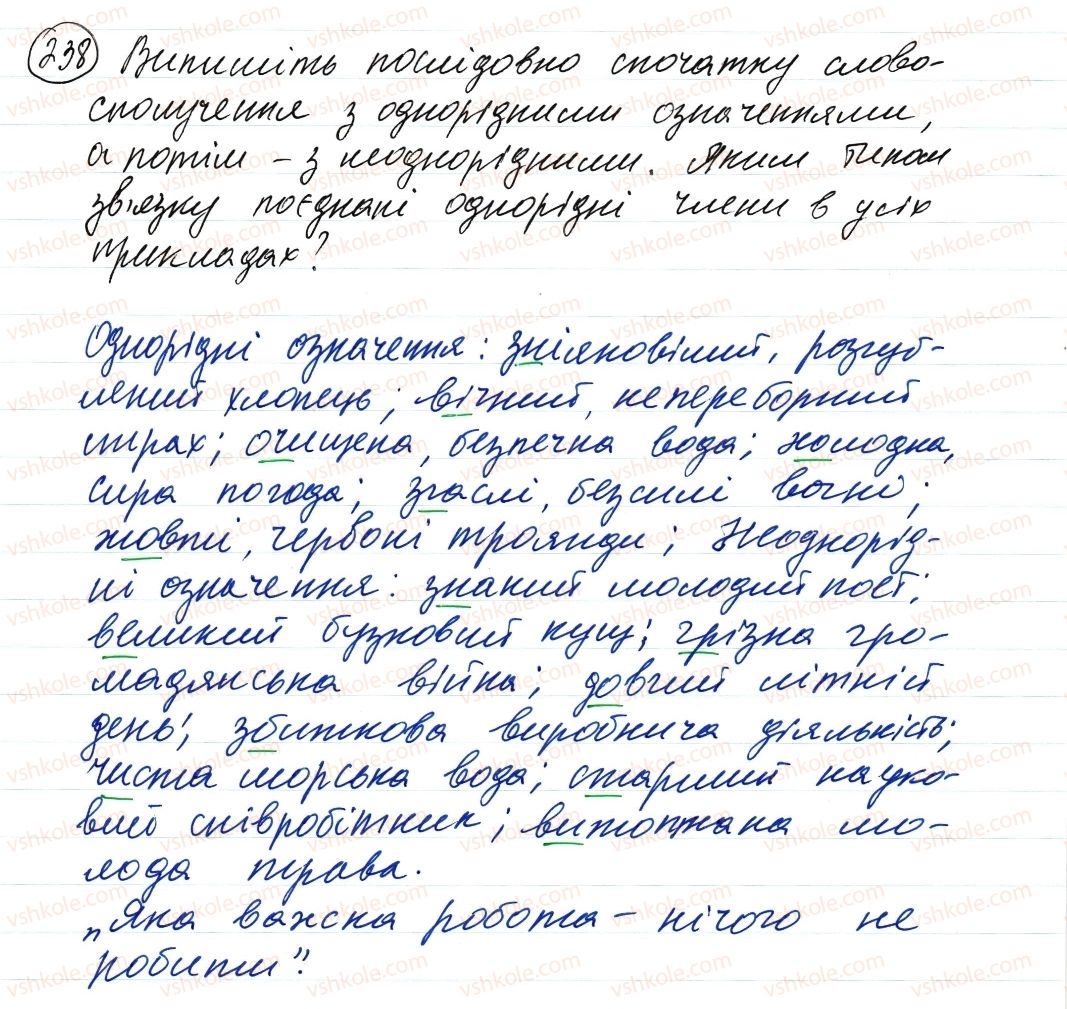 238 Випишіть послідовно спочатку слово-
сполучення з однорідними означеннями,
а потім – з неоднорідними. Яким типом
зв'язку поєднані однорідні члени в усіх
прикладах?
Однорідні означення: зніяковілий, розгуб-
лений хлопець; вічний, непереборний
страх; очищена, безпечна вода; холодна,
сира погода; згаслі, безсилі вогні;
жовті, червоні троянди; Неоднорід-
ні означення: знаний молодий поет;
великий бузковий кущ; грізна гро-
мадянська війна; довгий літній
день; збиткова виробнича діяльність;
чиста морська вода; старший науко-
вий співробітник; витоптана мо-
лода трава.
„Яка важска робота – нічого не
робити".